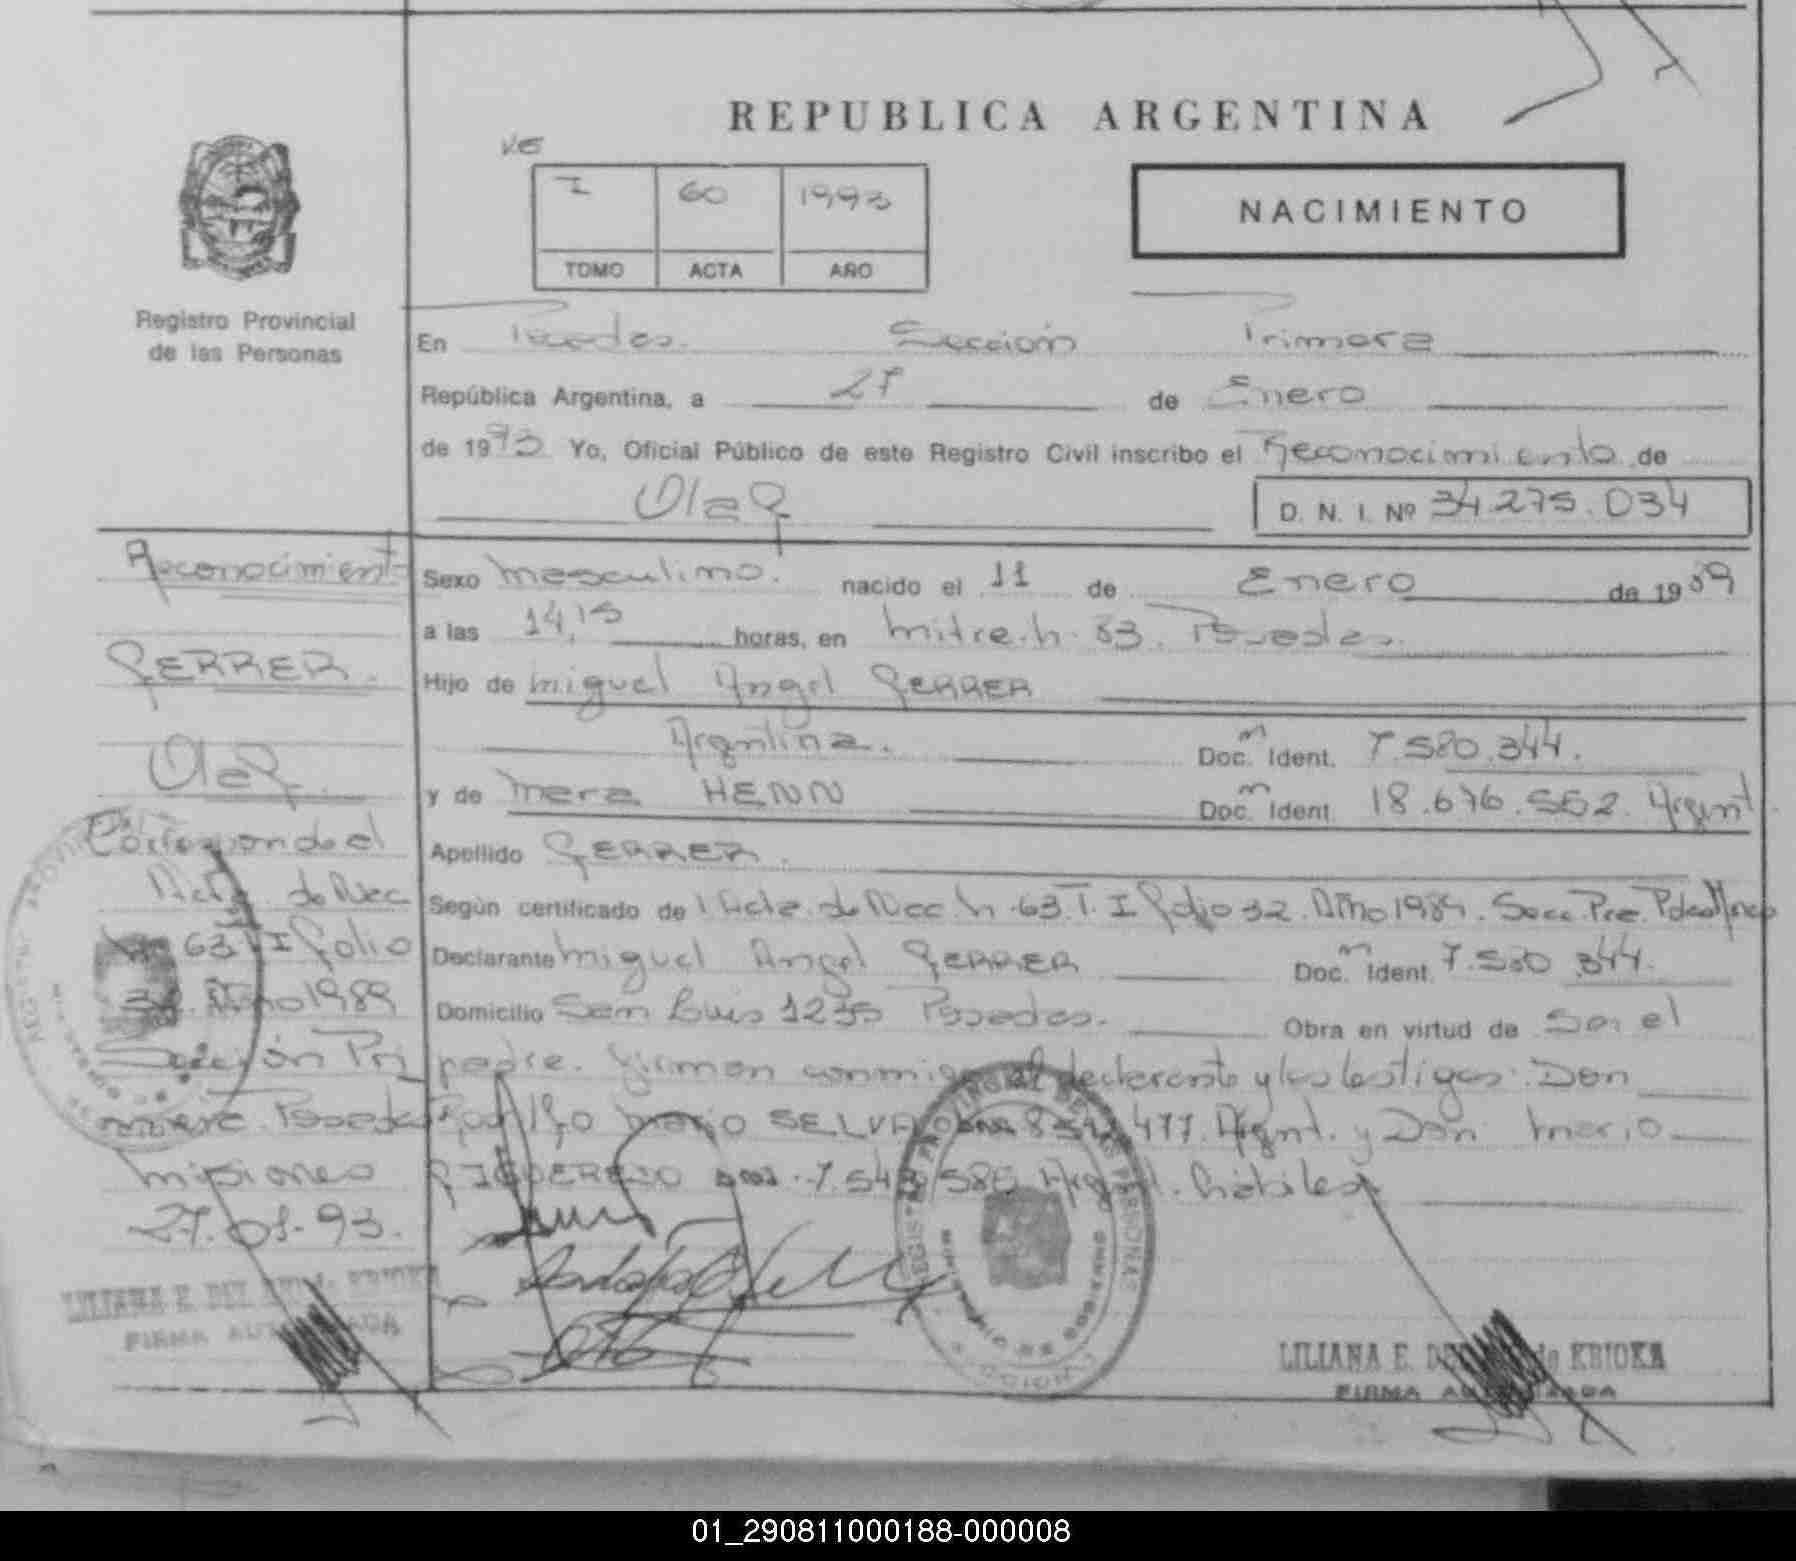 REPUBLICA ARGENTINA
I 60 1993
TOMO ACTA AÑO
NACIMIENTO
Registro Provincial
de las Personas
En Posadas. Sección Primera
República Argentina, a 27 de Enero
de 1993 Yo, Oficial Público de este Registro Civil inscribo el Reconocimiento de
Olaf
D. N. I. Nº 34.275.034
Reconocimiento
GERRER.
Olaf
Corresponde al
Acta de Nac
Nº 63 T I folio
32. Año 1989
Sección Pri
mera Posadas
Misiones
27.01.93.
LILIANA E. DE KRIOKA
FIRMA AUTORIZADA
Sexo masculino. nacido el 11 de Enero de 1989
a las 14,15 horas, en Mitre. n. 83. Posadas.
Hijo de Miguel Angel GERRER
Argentina. Doc. Ident. 7.580.344.
y de Mara HENN Doc. Ident. 18.676.552. Argent
Apellido GERRER.
Según certificado de Acta de Nac. n. 63. T. I folio 32. Año 1989. Secc. Pra.
Declarante Miguel Angel GERRER Doc. Ident. 7.580.344.
Domicilio San Luis 1235 Posadas. Obra en virtud de Ser el
padre. Firman conmigo el declarante y los testigos: Don
Rodolfo Mario SELVA 477. Argent. y Don Mario
FIGUEREDO DNI. 7.543.588 Argent. Hábiles
REGISTRO PROVINCIAL DE LAS PERSONAS
MINISTERIO DE GOBIERNO
LILIANA E. de KRIOKA
FIRMA AUTORIZADA
01_290811000188-000008